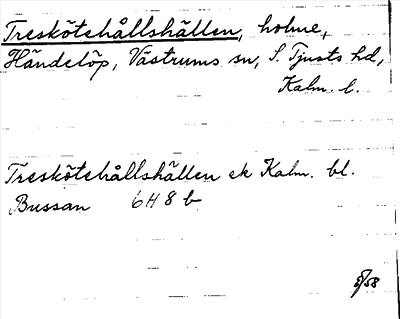 Treskötehållshällen, holme,
Händelöp, Västrums sn, S. Tjusts hd,
Kalm. l.
Treskötehållshällen ek Kalm. bl.
Bussan 6H 8 b
/58